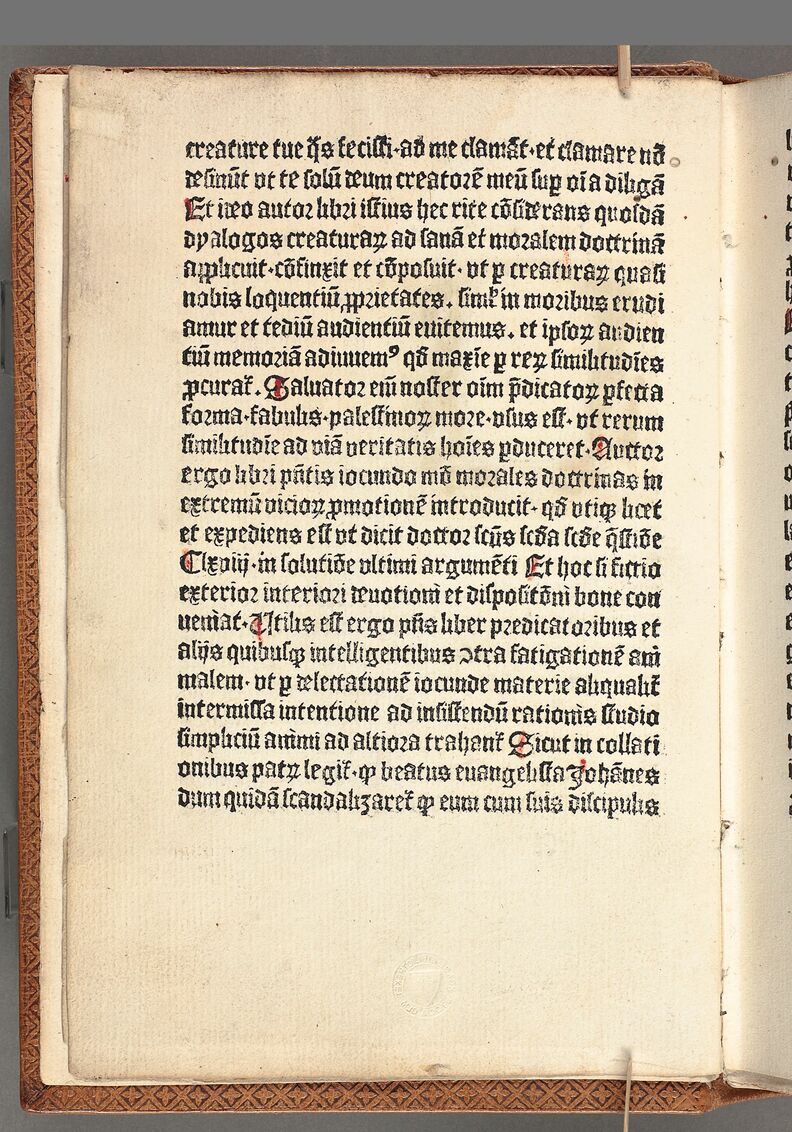 creature tue q̃s fecisti·ad me clamãt·et clamare nõ
desinũt vt te solũ deum creatorẽ meũ suꝑ oĩa diligã
Et ideo autor libri istius hec rite cõsiderans quosdã
dyalogos creaturaꝝ ad sanã et moralem doctrinã
applicuit·cõfinxit et cõposuit· vt ꝑ creaturaꝝ quasi
nobis loquentiũ ꝓprietates. simĺ in moribus erudi
amur et tediũ audientiũ euitemus. et ipsoꝝ audien
tiũ memoriã adiuuemꝰ qđ maxĩe ꝑ reꝝ similitudĩes
ꝓcurat̃. Saluator eĩm noster oĩm p̃dicatoꝝ ꝑfecta
forma·fabulis·palestinoꝝ more·vsus est· vt rerum
similitudĩe ad viã veritatis hoĩes ꝑduceret·Auctor
ergo libri pñtis iocundo mõ morales doctrinas in
extremũ vicioꝝ ꝓmotionẽ introducit· qđ vtiqꝫ licet
et expediens est vt dicit doctor scũs scđa scđe q̃stiõe
Clxviij·in solutiõe vltimi argumẽti Et hoc si fictio
exterior interiori deuotioni et dispositõni bone con
ueniat·Vtilis est ergo pñs liber predicatoribus et
alijs quibusqꝫ intelligentibus ↄtra fatigationẽ ani
malem· vt ꝑ delectationẽ iocunde materie aliqualit̃
intermissa intentione ad insistendũ rationis studio
simpliciũ animi ad altiora trahant̃ Sicut in collati
onibus patꝝ legit̃· ꝙ beatus euangelista Johãnes
dum quidã scandalizaret̃ ꝙ eum cum suis discipulis